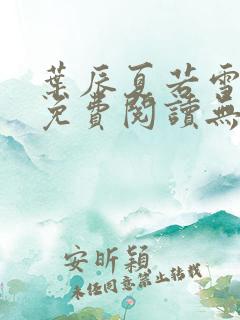 葉辰夏若雪
免費閱讀無
安昕穎
未经同意禁止转载